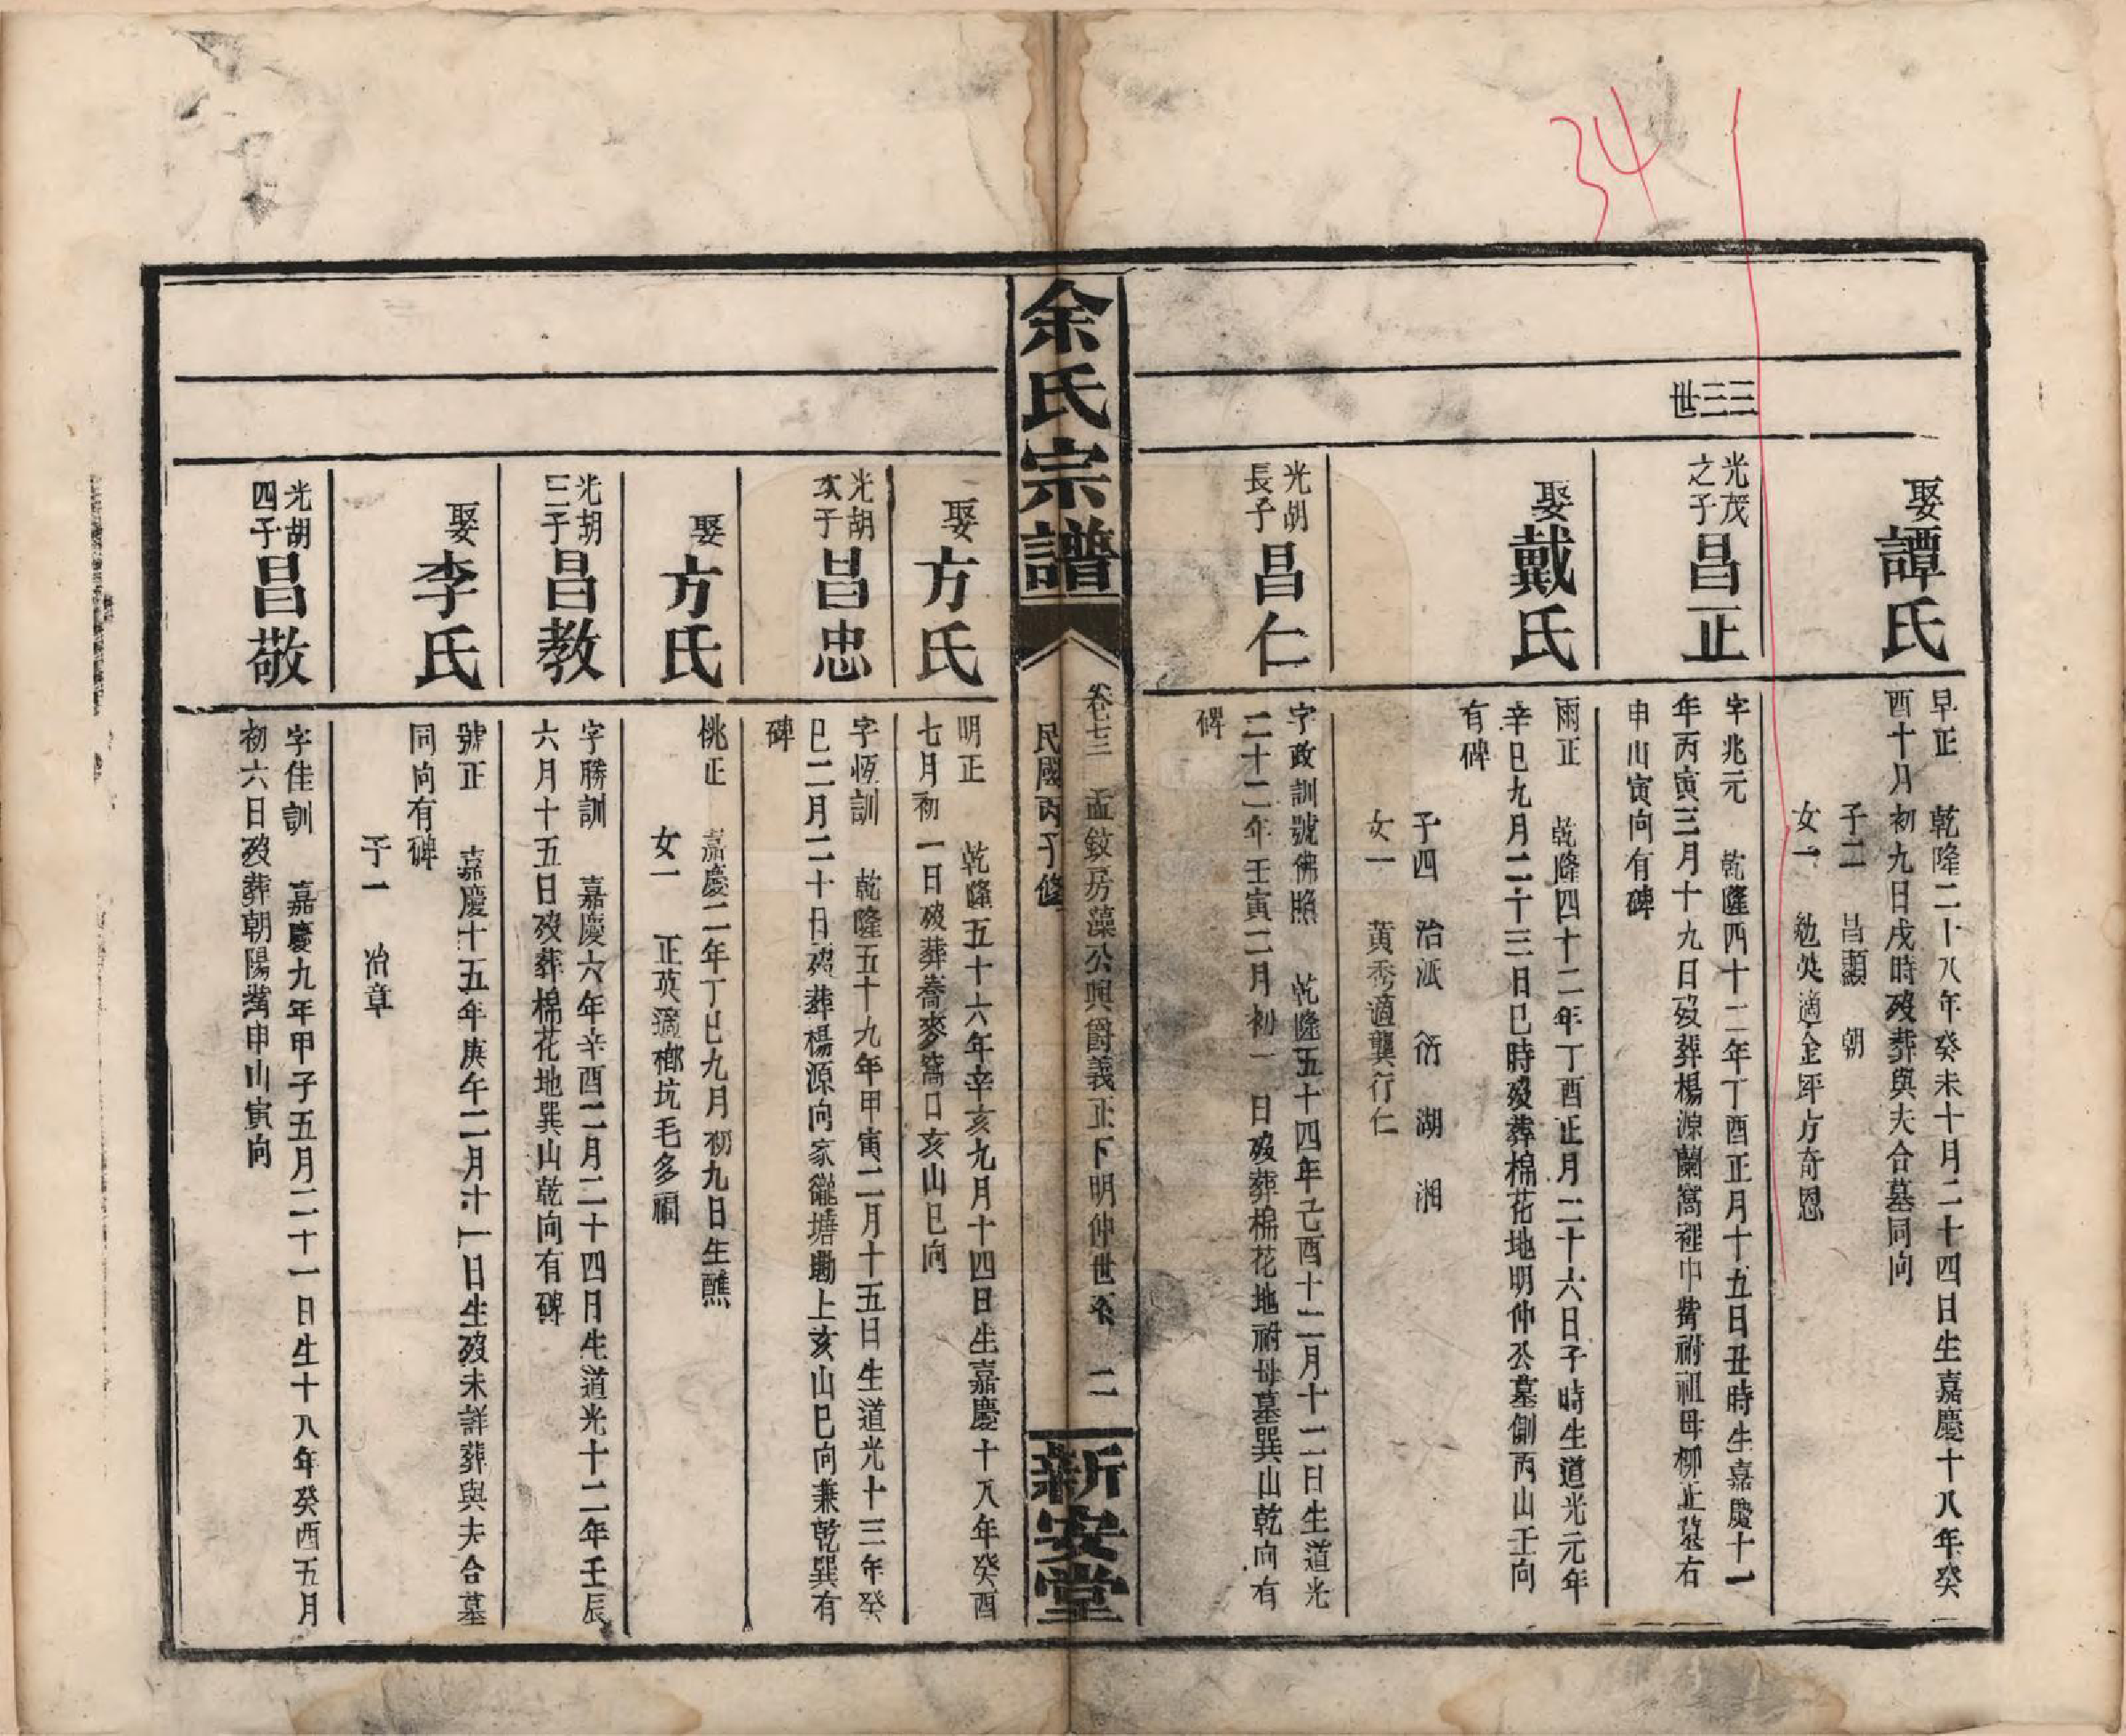 34 1
娶譚氏
早正 乾隆二十八年癸未十月二十四日生嘉慶十八年癸
酉十月初九日戌時歿葬與夫合墓同向
子二 昌顯 朝
女一 適金坪方奇恩
三三世
光茂之子昌正
字兆元 乾隆四十二年丁酉正月十五日丑時生嘉慶十一
年丙寅三月十九日歿葬楊源蘭窩裡巾觜祔祖母柳正墓右
申山寅向有碑
娶戴氏
雨正 乾隆四十二年丁酉正月二十六日子時生道光元年
辛巳九月二十三日巳時歿葬棉花地明仲公墓側丙山壬向
有碑
子四 治派 衍 湖 湘
女一 黃秀適龔行仁
光胡長子昌仁
字政訓號佛照 乾隆五十四年己酉十二月十二日生道光
二十二年壬寅二月初一日歿葬棉花地祔母墓巽山乾向有
碑
余氏宗譜
卷七三 孟鈫房藻公興爵義正下明仲世系 二
民國丙子修
新安堂
娶方氏
明正 乾隆五十六年辛亥九月十四日生嘉慶十八年癸酉
七月初一日歿葬蕎麥窩口亥山巳向
光胡次子昌忠
字恆訓 乾隆五十九年甲寅二月十五日生道光十三年癸
巳二月二十日歿葬楊源向家 塘勘上亥山巳向兼乾巽有
碑
娶方氏
桃正 嘉慶二年丁巳九月初九日生醮
女一 正英適榔坑毛多福
光胡三子昌教
字勝訓 嘉慶六年辛酉二月二十四日生道光十二年壬辰
六月十五日歿葬棉花地巽山乾向有碑
娶李氏
號正 嘉慶十五年庚午二月十一日生歿未詳葬與夫合墓
同向有碑
子一 治章
光胡四子昌敬
字佳訓 嘉慶九年甲子五月二十一日生十八年癸酉五月
初六日歿葬朝陽觜申山寅向